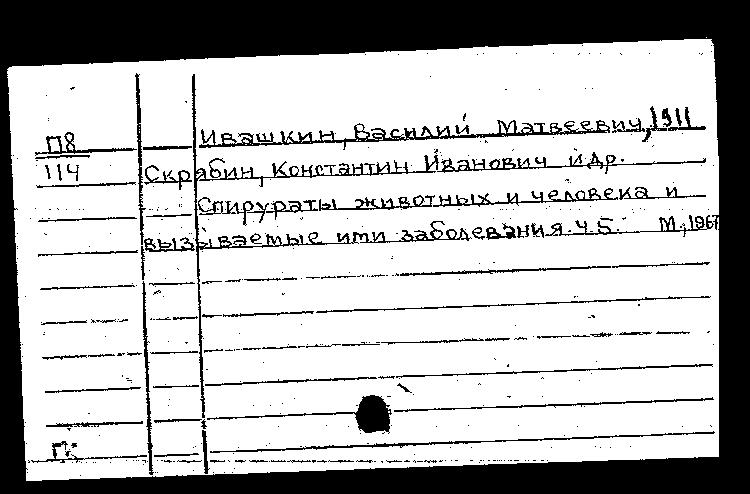 П8 Ивашкин, Василий Матвеевич, 1911
114 Скрябин, Константин Иванович и др.
Спирураты животных и человека и
вызываемые ими заболевания. Ч.5. М., 1967
ГК